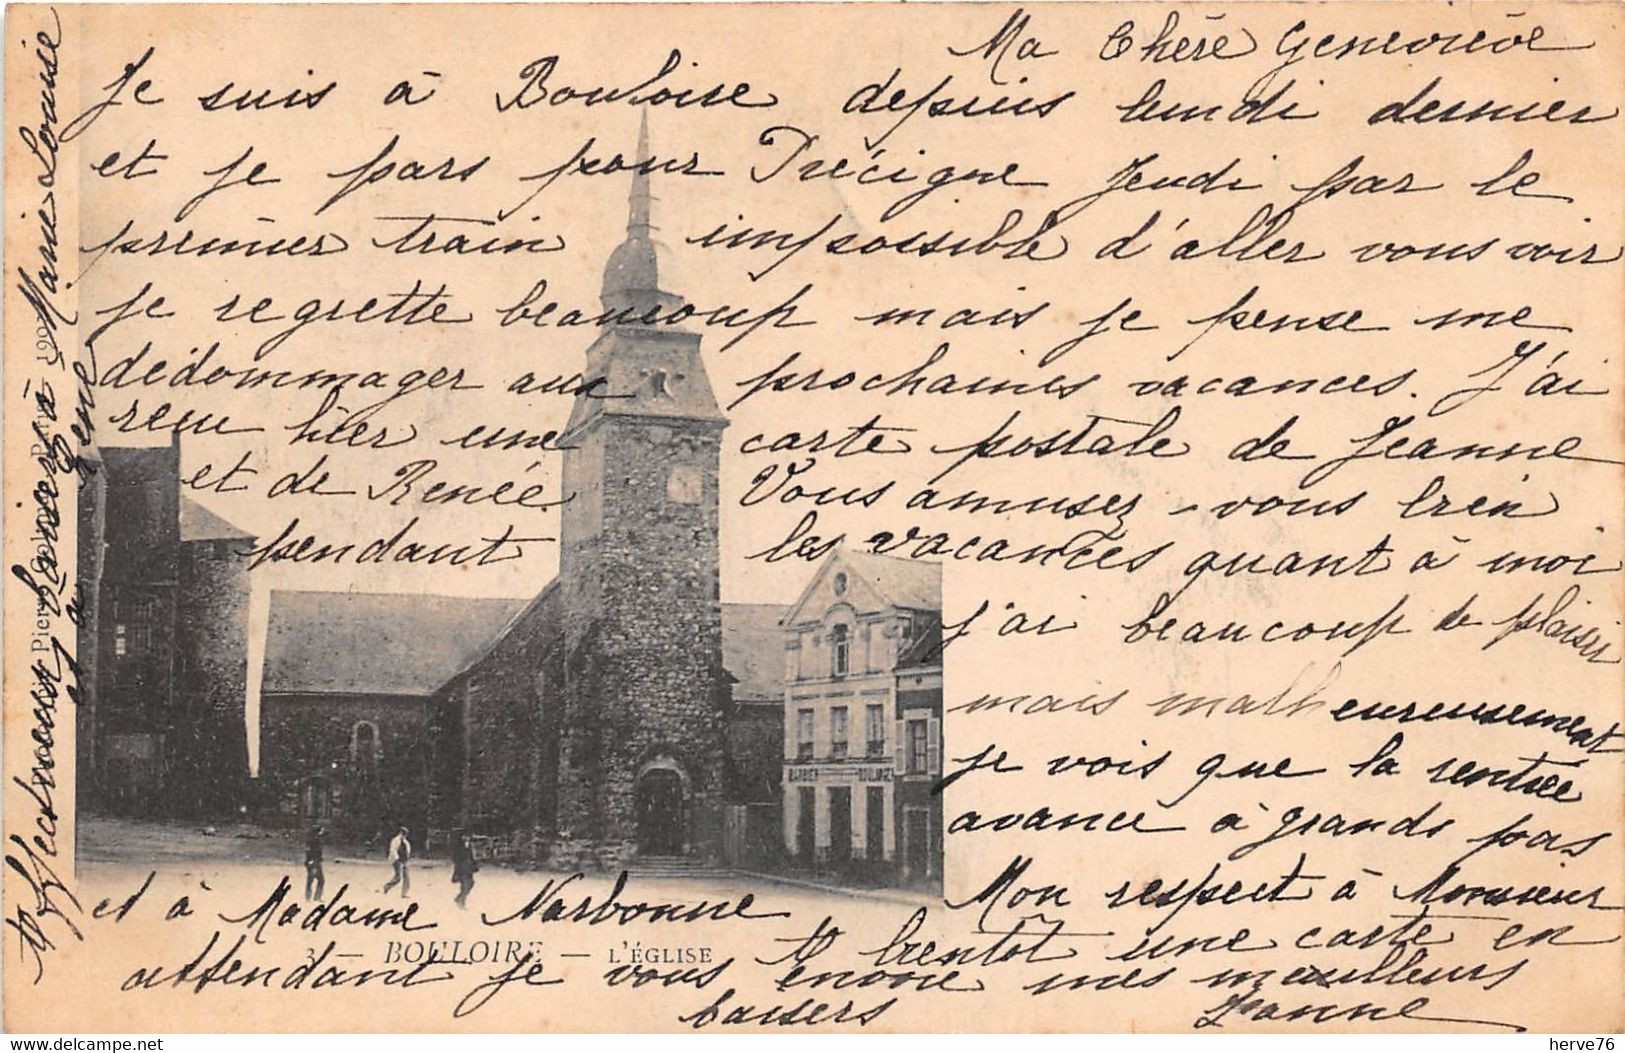 Ma Chère Geneviève
Je suis à Bouloire depuis lundi dernier
et je pars pour Précigne Jeudi par le
premier train impossible d'aller vous voir
je regrette beaucoup mais je pense me
dédommager aux prochaines vacances. J'ai
reçu hier une carte postale de Jeanne
et de Renée. Vous amusez-vous bien
pendant les vacances quant à moi
j'ai beaucoup de plaisir
mais malheureusement
je vois que la rentrée
avance à grands pas
Mon respect à Monsieur
et à Madame Narbonne
A bientôt une carte en
attendant je vous envoie mes meilleurs
baisers Jeanne
3. — BOULOIRE — L'ÉGLISE
BARBIER BOULANGER
Affectueux baisers à Marie Louise
et à René
herve76